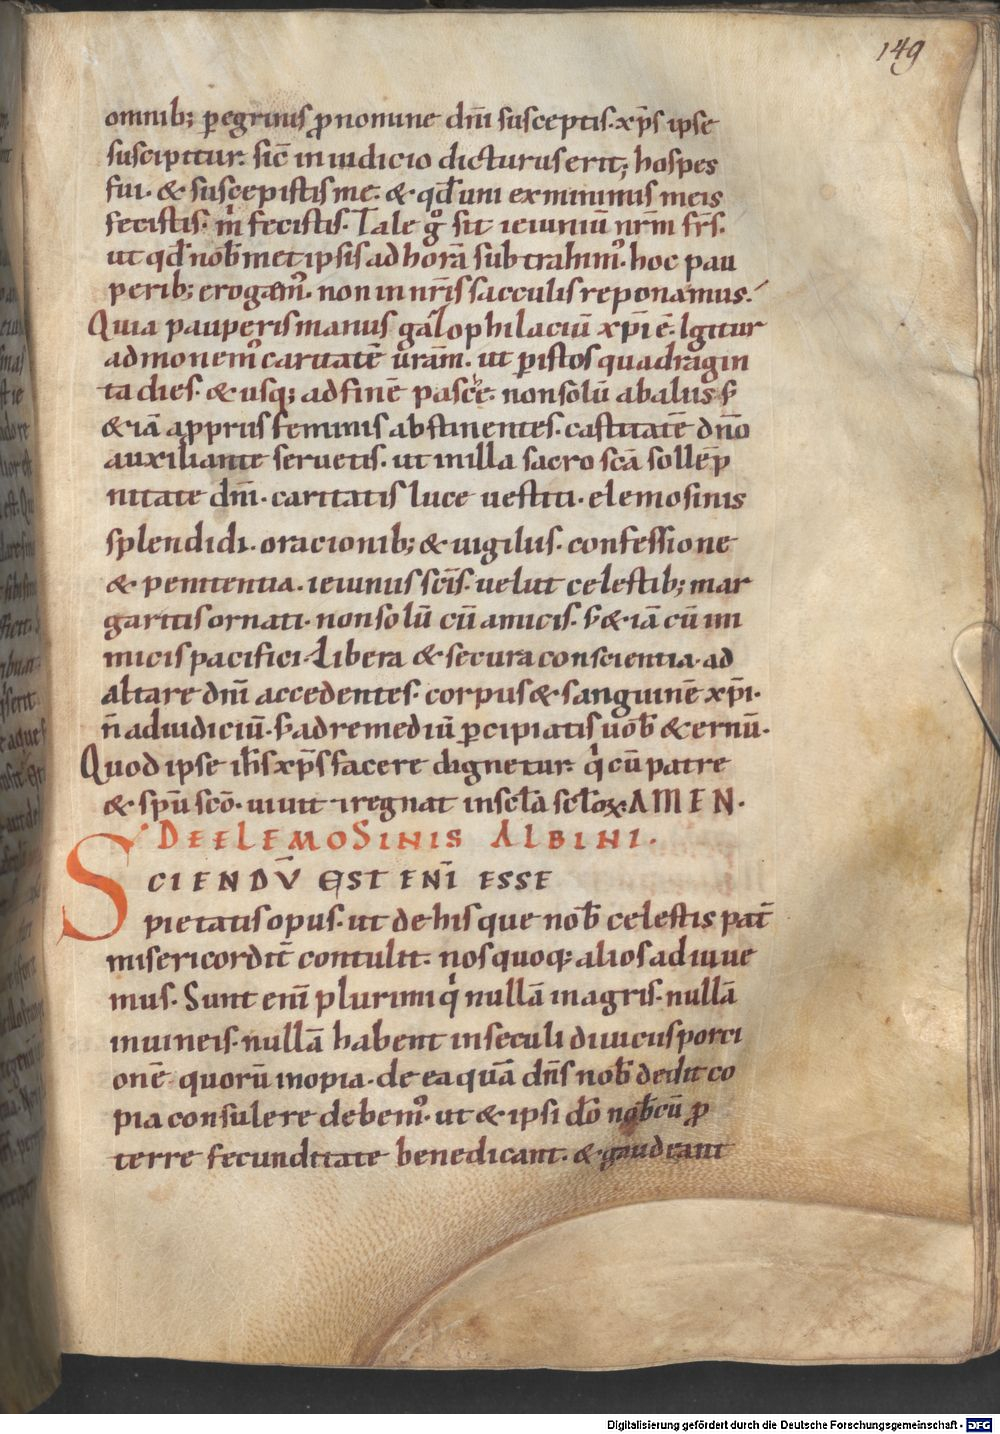 149
omnib; peregrinis ꝓ nomine dñi susceptis. xp̄s ipse
suscipitur. sic̄ in iudicio dicturus erit; hospes
fui. & suscepistis me. & qd̄ uni ex minimis meis
fecistis. m̍ fecistis. Tale gͦ sit ieiuniū nr̄m fr̄s.
ut qd̄ nob̄ met ipsis ad horā subtrahimꝰ. hoc pau
perib; erogamꝰ. non in nr̄is sacculis reponamus.
Quia pauperis manus gazophilaciū xp̄i ē. Igitur
admonemꝰ caritatē ur̄am. ut ꝑ istos quadragin
ta dies. & usq; ad finē pasce. non solū ab aliis s̄
& iā a propriis feminis abstinentes. castitatē dn̄o
auxiliante seruetis. ut in illa sacrosc̄a sollep̄
nitate dn̄i. caritatis luce uestiti. elemosinis
splendidi. oracionib; & uigiliis. confessione
& penitentia. ieiuniis sc̄is. uelut celestib; mar
garitis ornati. non solū cū amicis. s̄ & iā cū ini
micis pacifici. Libera & secura conscientia. ad
altare dn̄i accedentes. corpus & sanguinē xp̄i.
n̄ ad iudiciū. s̄ ad remediū ꝑcipiatis uob̄ & ernū.
Quod ipse ih̄s xp̄s facere dignetur. q̍ cū patre
& sp̄u sc̄o. uiuit ⁊ regnat in sc̄la sc̄loꝝ. AMEN.
DE ELEMOSINIS ALBINI.
SCIENDŪ EST ENĪ ESSE
pietatis opus. ut de his que nob̄ celestis pat̄
misericordit̄ contulit. nos quoq; alios adiuue
mus. Sunt enī plurimi q̍ nullā in agris. nullā
in uineis. nullā habent in seculi diuiciis porci
onē. quorū inopia. de ea quā dn̄s nob̄ dedit co
pia consulere debemꝰ. ut & ipsi dō nob̄cū ꝓ
terre fecunditate benedicant. & gaudeant
Digitalisierung gefördert durch die Deutsche Forschungsgemeinschaft - DFG